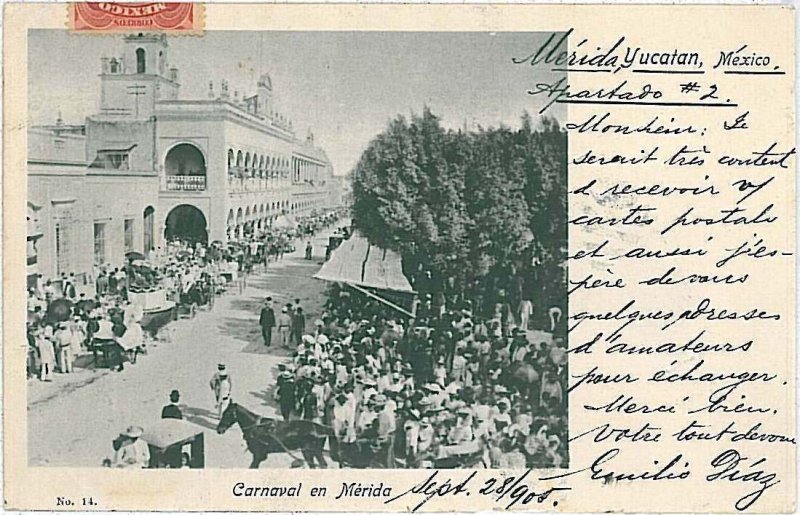 MEXICO
CORREOS
Mérida, Yucatan, México.
Apartado #2.
Monheim: Je
serait très content
d recevoir v/
cartes postals
et aussi j'es-
père de vous
quelques adresses
d'amateurs
pour échanger.
Merci bien.
Votre tout devoue
Emilio Díaz
No. 14.
Carnaval en Mérida Sept. 28/905.